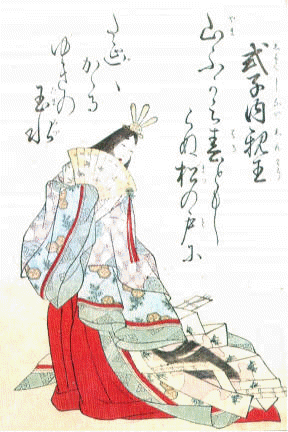 式子内親王
山ふかみ春ともし
らぬ松の戸に
たえ〳〵
かゝる
ゆきの
玉水